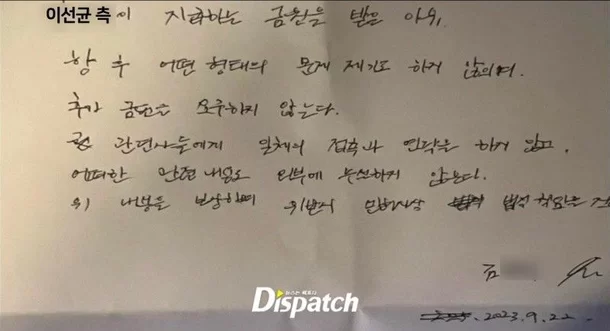 이선균 측이 지급하는 금원을 받은 이후
향후 어떤 형태의 문제 제기도 하지 않으며,
추가 금원을 요구하지 않는다.
관련자들에게 일체의 접촉과 연락을 하지 않고,
어떠한 관련 내용도 외부에 누설하지 않는다.
위 내용을 보장하며 위반시 민형사상 법적 책임을
김
뉴스는 팩트다
Dispatch
2023.9.22